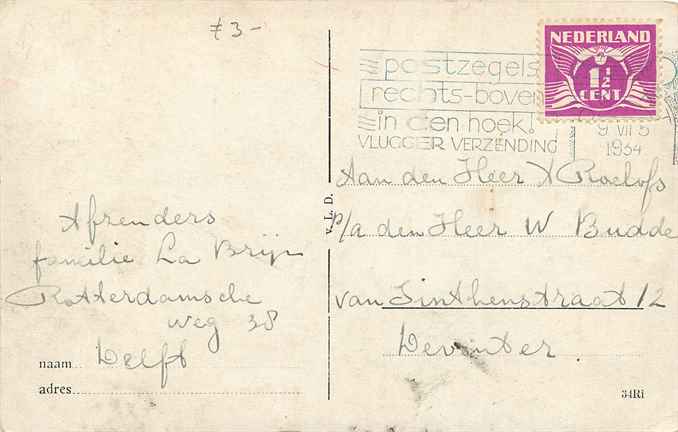 £3-
NEDERLAND
1½
CENT
postzegels
rechts-boven
in den hoek!
VLUGGER VERZENDING
9 VII 5
1934
Afzenders
familie La Brijn
Rotterdamsche
weg 38
Delft
naam
adres
v. L. D.
Aan den Heer X Roelofs
p/a den Heer W Budde
van Linthenstraat 12
Deventer.
34Ri